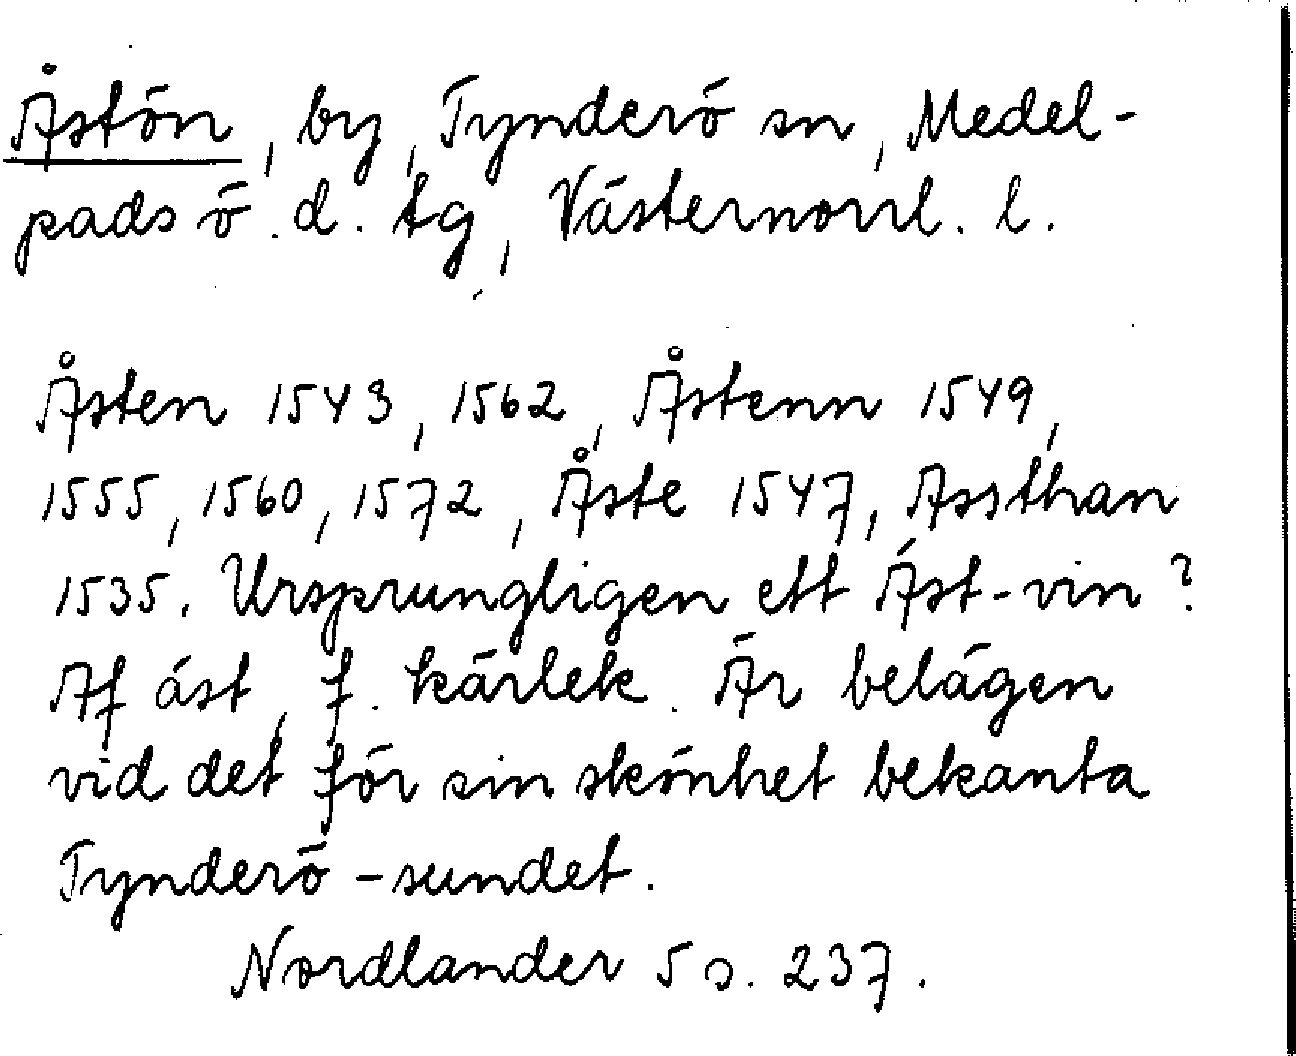 Åstön, by, Tynderö sn, Medel-
pads ö. d. tg, Västernorrl. l.
Åsten 1543, 1562, Åstenn 1549,
1555, 1560, 1572, Åste 1547, Assthan
1535. Ursprungligen ett Ást-vin?
Af ást, f. kärlek. Är belägen
vid det för sin skönhet bekanta
Tynderö-sundet.
Nordlander 5 s. 237.